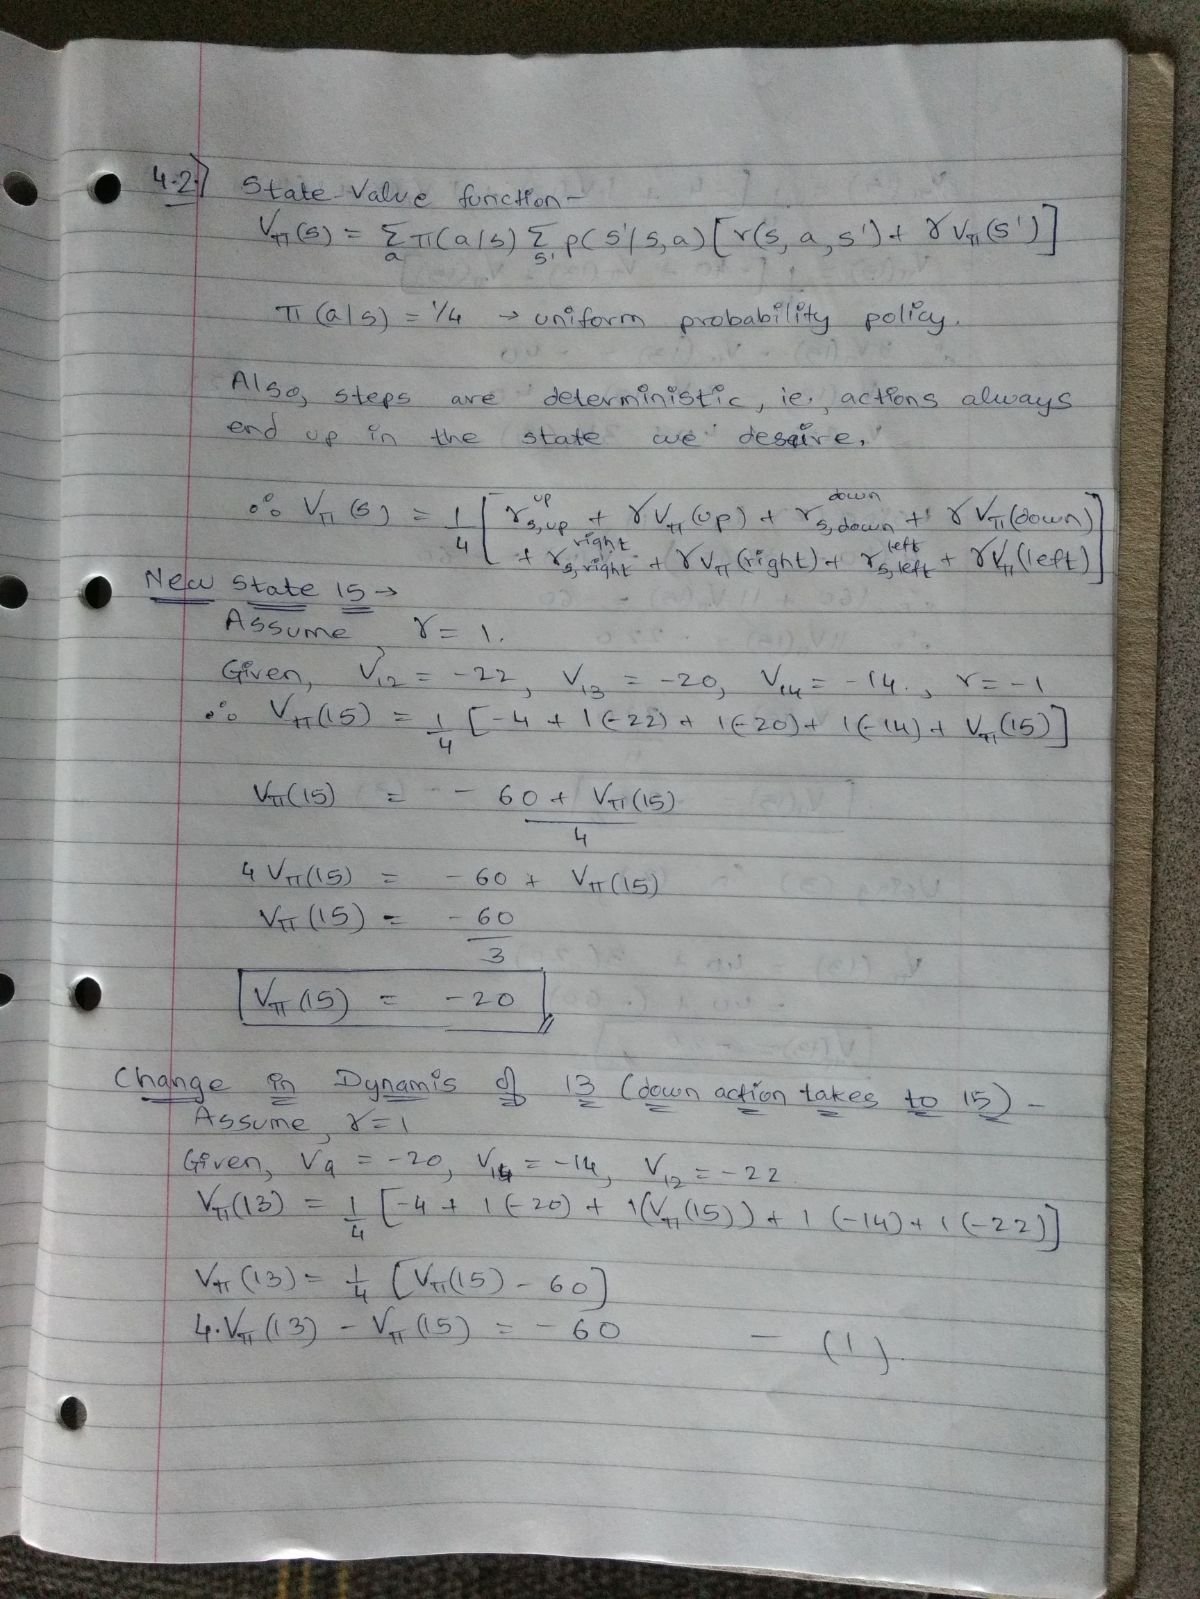 4.2.) State-Value function -
Vπ(s) = Σ_a π(a|s) Σ_s' p(s'|s,a) [r(s,a,s') + γVπ(s')]
π(a|s) = 1/4 → uniform probability policy.
Also, steps are deterministic, ie., actions always
end up in the state we desire.
∴ Vπ(s) = 1/4 [r^up_s,up + γVπ(up) + r^down_s,down + γVπ(down)
+ r^right_s,right + γVπ(right) + r^left_s,left + γVπ(left)]
New state 15 →
Assume γ = 1.
Given, V12 = -22, V13 = -20, V14 = -14., r = -1
∴ Vπ(15) = 1/4 [-4 + 1(-22) + 1(-20) + 1(-14) + Vπ(15)]
Vπ(15) = - 60 + Vπ(15)
4
4Vπ(15) = -60 + Vπ(15)
Vπ(15) = -60
3
Vπ(15) = -20
Change in Dynamis of 13 (down action takes to 15) -
Assume, γ = 1
Given, V9 = -20, V14 = -14, V12 = -22.
Vπ(13) = 1/4 [-4 + 1(-20) + 1(Vπ(15)) + 1(-14) + 1(-22)]
Vπ(13) = 1/4 [Vπ(15) - 60]
4.Vπ(13) - Vπ(15) = -60 — (1).